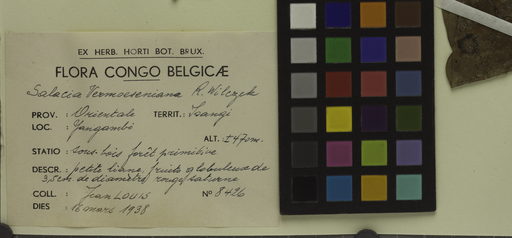 EX HERB. HORTI BOT. BRUX.
FLORA CONGO BELGICÆ
Salacia Vermoeseniana R. Wilczek
PROV. : Orientale TERRIT.: Isangi
LOC. : Yangambi
ALT.: ±470m.
STATIO : sous-bois forêt primitive
DESCR. : petite liane, fruits globuleux de
3,5cm. de diamètre rouge
COLL. : Jean LOUIS Nº 8426
DIES : 16 mars 1938